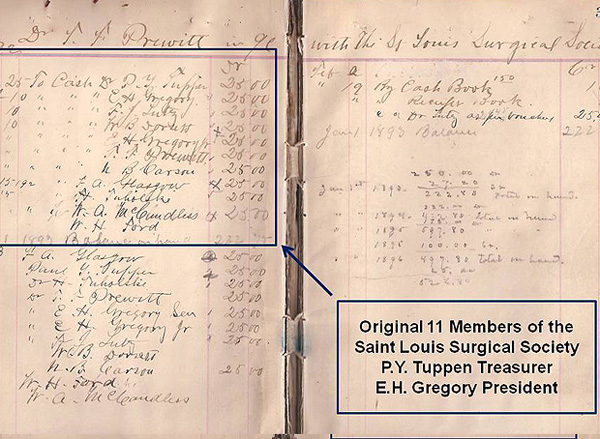 Dr T. F Prewitt in % with The St Louis Surgical Soci
Dr
25 To Cash Dr P. Y Tupper 25 00
10 " " " E H. Gregory " 25 00
" " " F. J Lutz 25 00
10 " " " W B Dorsett 25 00
" " " E H Gregory Jr 25 00
" " " T. F Prewitt 25 00
" " " N B Carson " 25 00
15-192 " F A. Glasgow 25 00
H. Tuholske 25 00
W. A. McCandless 25 00
W. H. Ford
1893 Balance on hand 222
F A. Glasgow 25 00
Paul Y. Tupper " 25 00
Dr H. Tuholske " 25 00
Dr T. F Prewitt 25 00
" E H. Gregory Sen 25 00
" E H. Gregory Jr 25 00
" F. J. Lutz " 25 00
W. B. Dorsett
N. B. Carson 25 00
W. H. Ford
W. A. McCandless
Feb Cr
150
19 By Cash Book
" " Receipt Book
" " Dr Lutz as per voucher 25
Jan 1 1893 Balance 222
250.00
27.20
Jan 1st 1893 222.80 Total on hand
" " 1894 Total on hand
" " 1895 597.80
1896 100.00
" " 1896 497.80 Total on hand.
25.00
522.80
Original 11 Members of the
Saint Louis Surgical Society
P.Y. Tuppen Treasurer
E.H. Gregory President